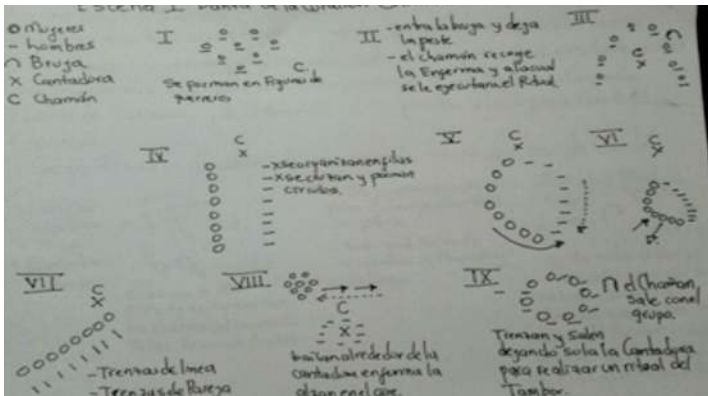 Escena I Danza de la
o Mujeres
- hombres
∩ Bruja
x Cantadora
C Chamán
I
C.
Se forman en Figuras de
II
- entra la bruja y deja
la peste
- el chamán recoge
la Enferma y a la cual
se le ejecutara el Ritual
III
C
x
IV
C
x
- x se organizan en filas
- x se cruzan y forman
circulos.
V
C
x
VI
C x
VII
C
x
- Trenzas de linea
- Trenzas de Pareja
VIII
C
x
bailan alrededor de la
cantadora enferma la
alzan en el aire
IX
∩ el Chaman
Sale con el
grupo.
Trenzan y Salen
dejando sola la Cantadora
para realizar un ritual del
Tambor.